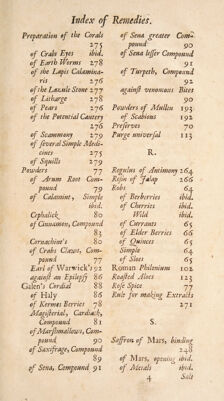 Index of Remedies.
Preparation of the Corals
275
of Crabs Eyes ibid.
of Earth Worms 278
of the Lapis Calamina-
ris 276
of the Lazule Stone 277
of Litharge 278
of Pears 276
of the Potential Cautery
276
of Scammony 279
of several Simple Medi-
cines 275
of Squills 279
Powders 77
of Arum Root Com-
pound 79
of Calamint, Simple
ibid.
Cephalick 80
of Cinnamon, Compound
83
Cornachin's 80
of Crabs Claws, Com-
pound 77
Earl of Warwick's 92
against an Epilepsy 86
Galen's Cordial 88
of Haly 86
of Kermes Berries 78
Magisterial, Cardiack,
Compound 81
of Marshmallows, Com-
pound 90
of Saxifrage, Compound
89
of Sena, Compound 91
of Sena greater Com-
pound 90
of Sena lesser Compound
91
of Turpeth, Compound
92
against venomous Bites
90
Powders of Mullu 193
of Scabious 192
Preserves 70
Purge universal 113
R.
Regulus of Antimony 264
Resin of Jalap 266
Robs 64
of Berberries ibid.
of Cherries ibid.
Wild ibid.
of Currants 65
of Elder Berries 66
of Quinces 65
Simple 64
of Sloes 65
Roman Philonium 102
Roasted Aloes 123
Rose Spice 77
Rule for making Extracts
271
S.
Saffron of Mars, binding
248
of Mars, opening ibid.
of Metals ibid.
4 Salt